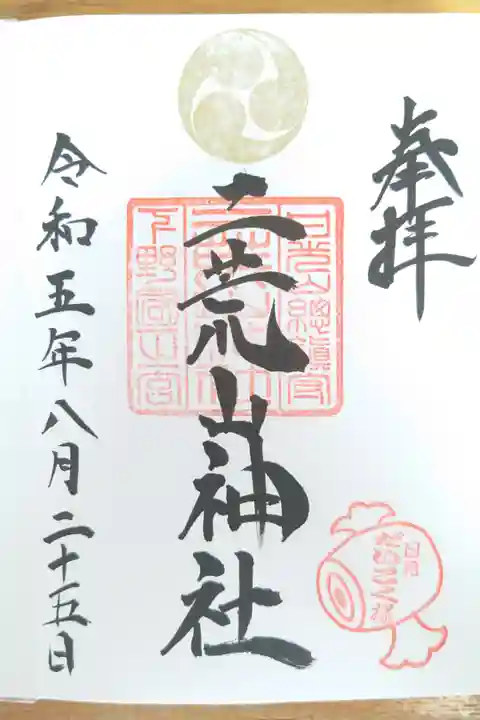 奉拝
日光山総鎮守
下野國一宮
二荒山神社
日光
だいこく様
令和五年八月二十五日